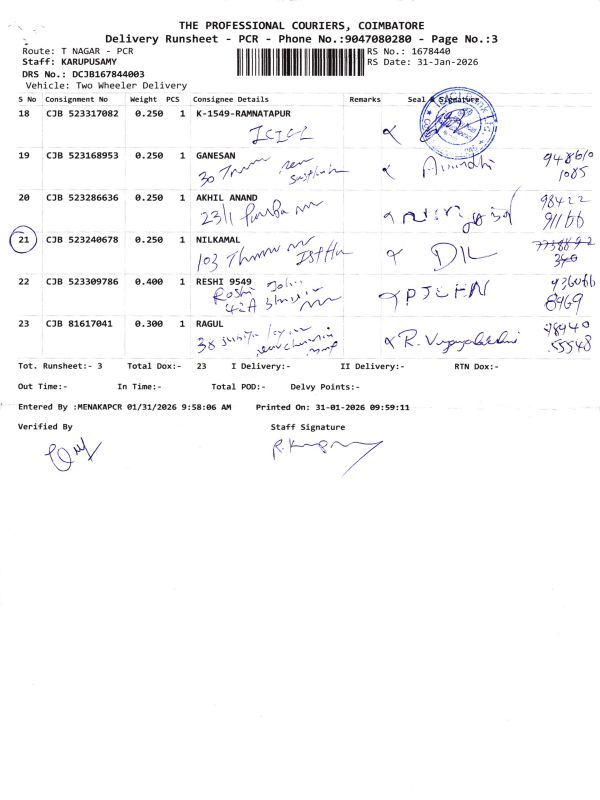 THE PROFESSIONAL COURIERS, COIMBATORE
Delivery Runsheet - PCR - Phone No.:9047080280 - Page No.:3
Route: T NAGAR - PCR RS No.: 1678440
Staff: KARUPUSAMY RS Date: 31-Jan-2026
DRS No.: DCJB167844003
Vehicle: Two Wheeler Delivery
S No Consignment No Weight PCS Consignee Details Remarks Seal & Signature
18 CJB 523317082 0.250 1 K-1549-RAMNATAPUR
ICICI
19 CJB 523168953 0.250 1 GANESAN
30 948610
1085
20 CJB 523286636 0.250 1 AKHIL ANAND 98422
23/1 91166
21 CJB 523240678 0.250 1 NILKAMAL
103 340
22 CJB 523309786 0.400 1 RESHI 9549 936066
Roshi 8969
42A
23 CJB 81617041 0.300 1 RAGUL 98940
38 R. Vijayalakshmi 55548
Tot. Runsheet:- 3 Total Dox:- 23 I Delivery:- II Delivery:- RTN Dox:-
Out Time:- In Time:- Total POD:- Delvy Points:-
Entered By :MENAKAPCR 01/31/2026 9:58:06 AM Printed On: 31-01-2026 09:59:11
Verified By Staff Signature